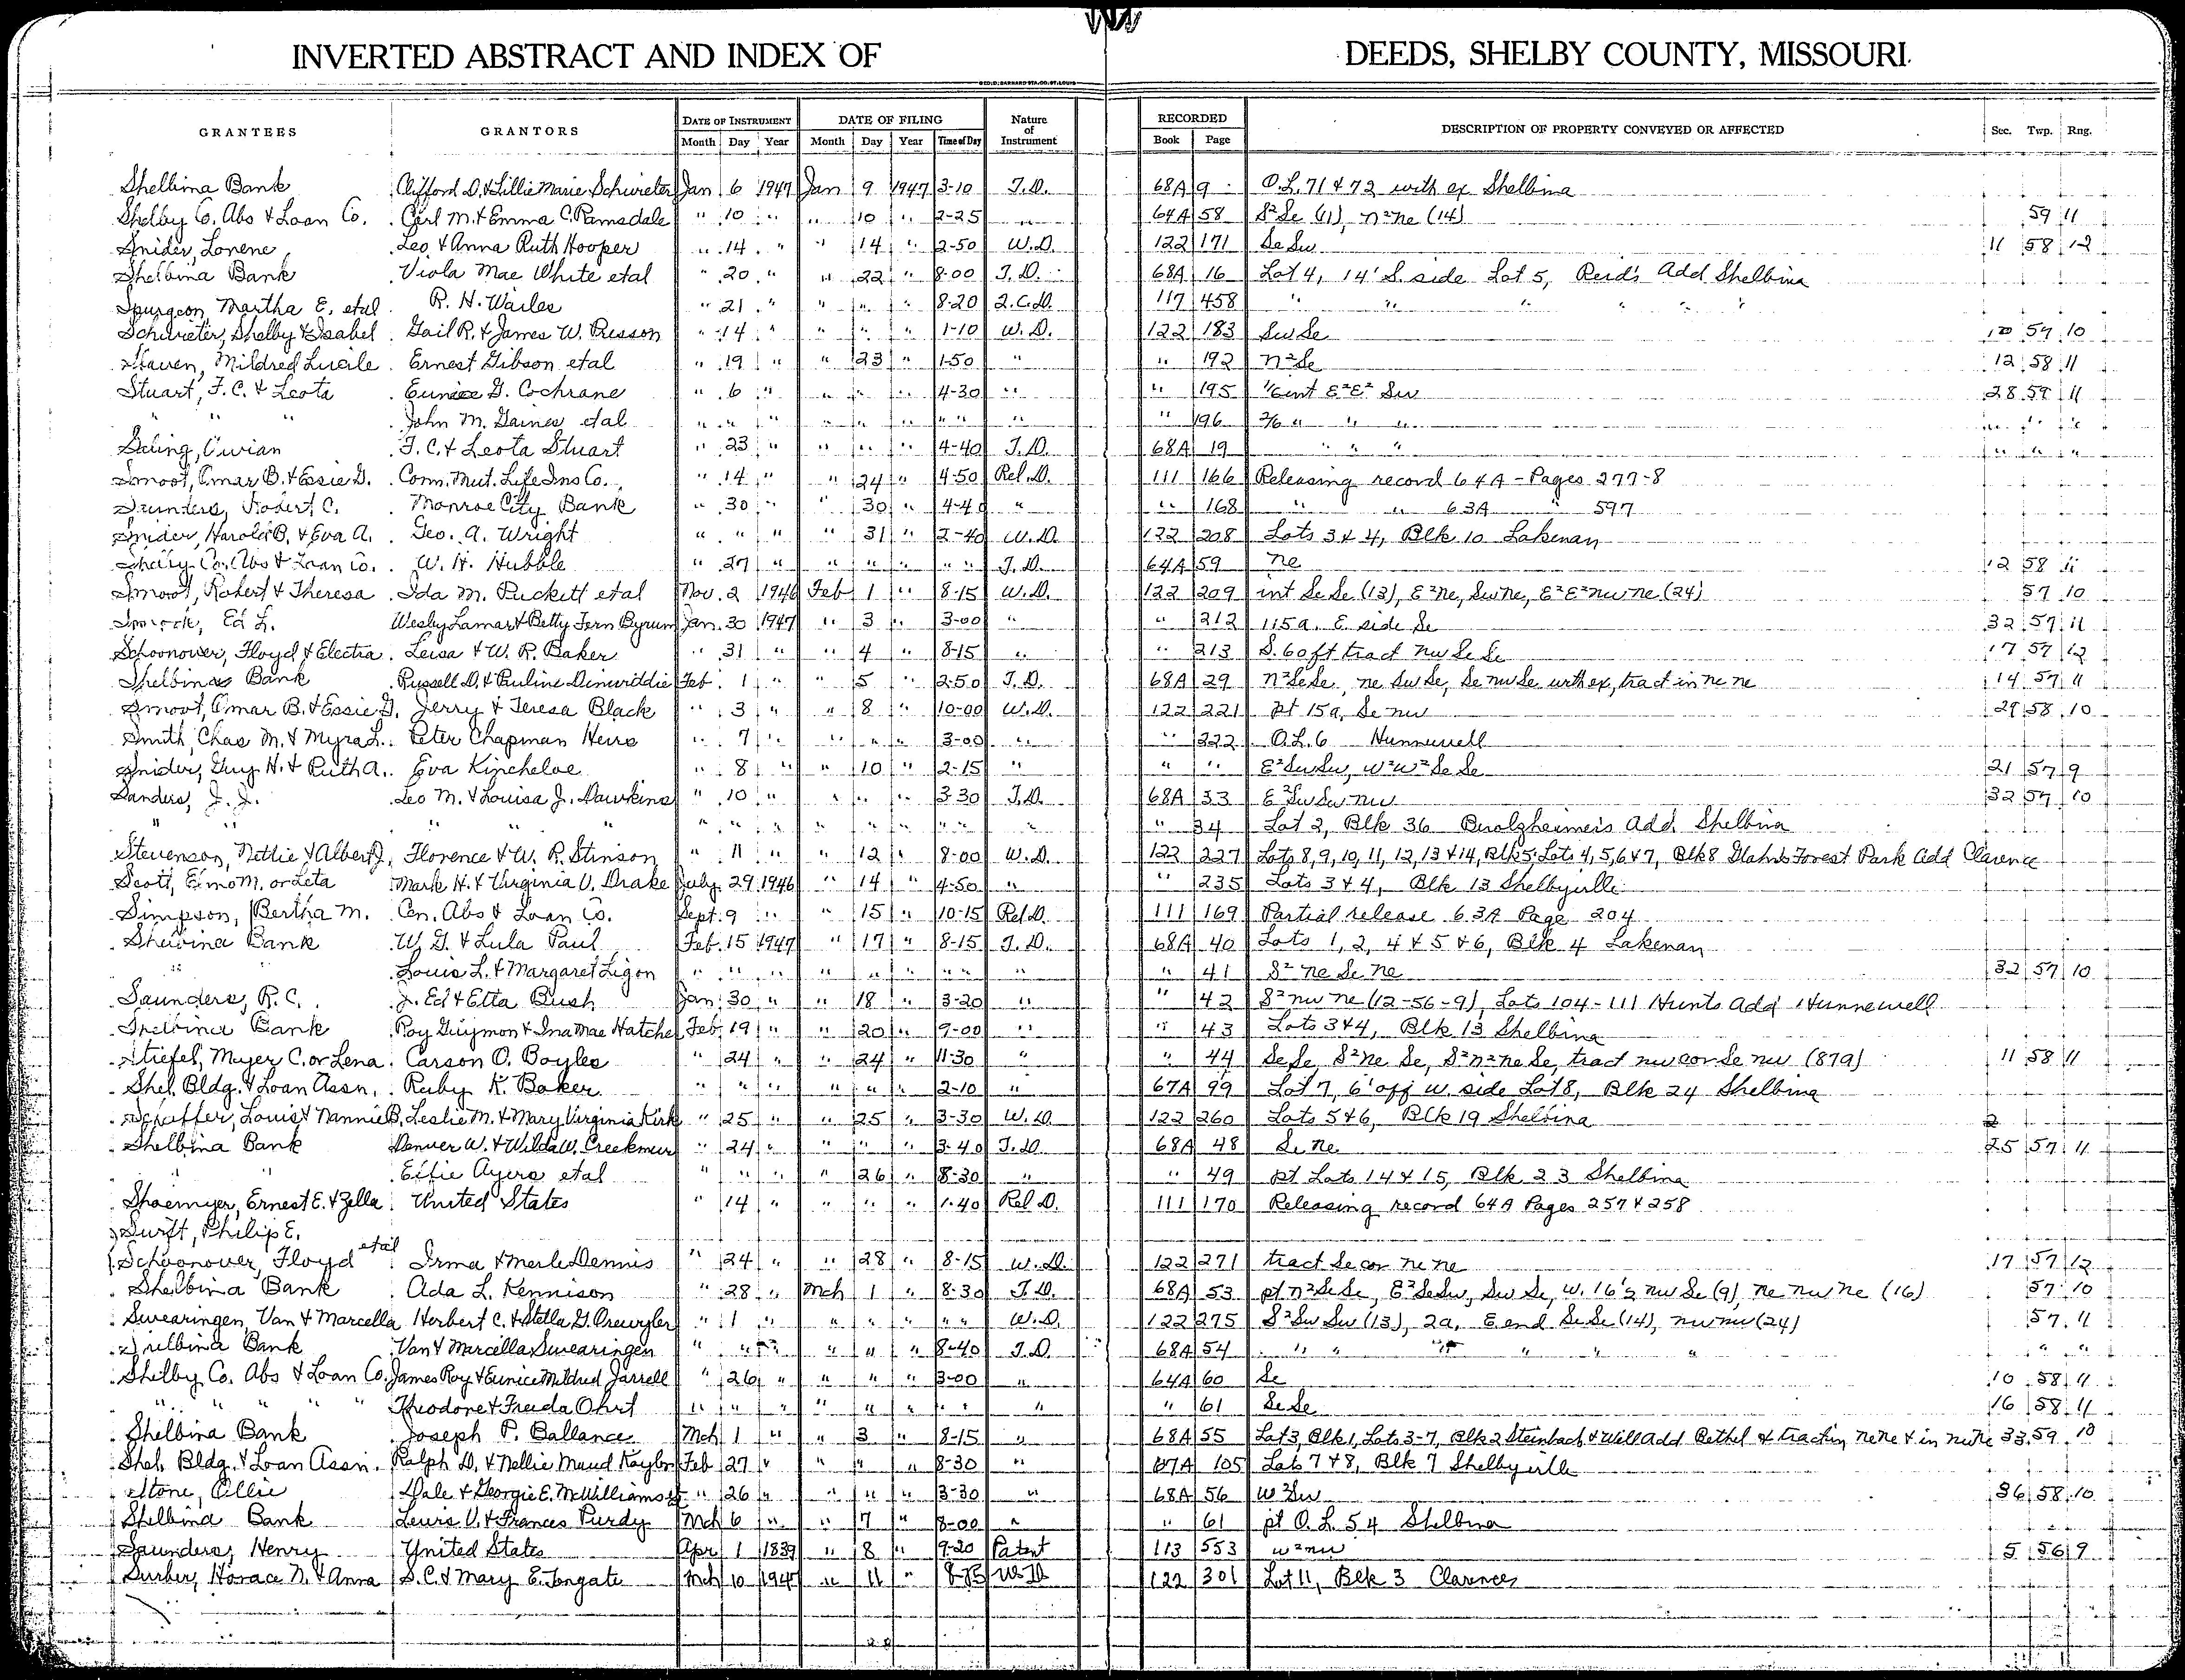 INVERTED ABSTRACT AND INDEX OF DEEDS, SHELBY COUNTY, MISSOURI.
GEO. D. BARNARD STA. CO. ST. LOUIS
GRANTEES GRANTORS DATE OF INSTRUMENT DATE OF FILING Nature of Instrument RECORDED DESCRIPTION OF PROPERTY CONVEYED OR AFFECTED Sec. Twp. Rng.
Month Day Year Month Day Year Time of Day Book Page
Shelbina Bank Clifford D. & Lillie Marie Schwieter Jan 6 1947 Jan 9 1947 3-10 T.D. 68A 9 O.L. 71 & 72 with ex Shelbina
Shelby Co. Abs & Loan Co. Carl M. & Emma C. Ramsdale " 10 " " 10 " 2-25 " 64A 58 S²Se (11), n²ne (14) 59 11
Snider, Lorene Leo & Anna Ruth Hooper " 14 " " 14 " 2-50 W.D. 122 171 SeSw 11 58 12
Shelbina Bank Viola Mae White etal " 20 " " 22 " 8-00 T.D. 68A 16 Lot 4, 14' S. side Lot 5, Reid's Add Shelbina
Spurgeon, Martha E. etal R. H. Wailes " 21 " " " " 8-20 Q.C.D. 117 458 " " " " " "
Schwieter, Shelby & Isabel Gail R. & James W. Presson " 14 " " " " 1-10 W.D. 122 183 SwSe 10 57 10
Staven, Mildred Lucile Ernest Gibson etal " 19 " " 23 " 1-50 " " 192 n²Se 12 58 11
Stuart, F.C. & Leota Eunice G. Cochrane " 6 " " " " 4-30 " " 195 1/6 int E²E² Sw 28 59 11
" " " John M. Gaines etal " " " " " " " " " " 196 2/6 " " " " " "
Saling, Vivian F.C. & Leota Stuart " 23 " " " " 4-40 T.D. 68A 19 " " " " " "
Smoot, Omar B. & Essie G. Conn. Mut. Life Ins Co. " 14 " " 24 " 4-50 Rel.D. 111 166 Releasing record 64A - Pages 277-8
Saunders, Robert C. Monroe City Bank " 30 " " 30 " 4-40 " " 168 " " 63A " 597
Snider, Harold B. & Eva A. Geo. A. Wright " " " " 31 " 2-40 W.D. 122 208 Lots 3 & 4, Blk 10 Lakenan
Shelby Co. Abs & Loan Co. W. H. Hubble " 27 " " " " " " T.D. 64A 59 ne 12 58 11
Smoot, Robert & Theresa Ida M. Puckett etal Nov. 2 1946 Feb 1 " 8-15 W.D. 122 209 int SeSe (13), E²ne, Swne, E²E²nwne (24) 57 10
Ed L. Wesley Lamar & Betty Fern Byrum Jan. 30 1947 " 3 " 3-00 " " 212 115a. E. side Se 32 57 11
Schoonover, Floyd & Electra Leisa & W. R. Baker " 31 " " 4 " 8-15 " " 213 S. 60 ft tract nw Se Se 17 57 12
Shelbina Bank Russell D. & Pauline Dinwiddie Feb. 1 " " 5 " 2-50 T.D. 68A 29 n²SeSe, ne SwSe, Se nwSe with ex, tract in ne ne 14 57 11
Smoot, Omar B. & Essie G. Jerry & Teresa Black " 3 " " 8 " 10-00 W.D. 122 221 pt 15a, Se nw 29 58 10
Smith, Chas M. & Myra L. Peter Chapman Heirs " 7 " " " " 3-00 " " 222 O.L. 6 Hunnewell
Snider, Guy H. & Ruth A. Eva Kincheloe " 8 " " 10 " 2-15 " " " E²SwSw, W²W²SeSe 21 57 9
Sanders, J. J. Leo M. & Louisa J. Hawkins " 10 " " " " 3-30 T.D. 68A 33 E²SwSw nw 32 57 10
" " " " " " " " " " " " " " " 34 Lot 2, Blk 36 Berolzheimer's Add. Shelbina
Stevenson, Nettie & Albert J. Florence & W. R. Stinson " 11 " " 12 " 8-00 W.D. 122 227 Lots 8, 9, 10, 11, 12, 13 & 14, Blk 5; Lots 4, 5, 6 & 7, Blk 8 Forest Park Add Clarence
Scott, Elmo M. or Leta Mark H. & Virginia V. Drake July 29 1946 " 14 " 4-50 " " 235 Lots 3 & 4, Blk 13 Shelbyville
Simpson, Bertha M. Cen. Abs & Loan Co. Sept. 9 " " 15 " 10-15 Rel D. 111 169 Partial release 63A Page 204
Shelbina Bank W. G. & Lula Paul Feb. 15 1947 " 17 " 8-15 T.D. 68A 40 Lots 1, 2, 4 & 5 & 6, Blk 4 Lakenan
" " Louis L. & Margaret Ligon " " " " " " " " " " 41 S² ne Se ne 32 57 10
Saunders, R. C. J. Ed & Etta Bush Jan. 30 " " 18 " 3-20 " " 42 S² nw ne (12-56-9), Lots 104-111 Hunts Add Hunnewell
Shelbina Bank Roy Guymon & Ina Mae Hatcher Feb. 19 " " 20 " 9-00 " " 43 Lots 3 & 4, Blk 13 Shelbina
Stiefel, Myer C. or Lena Carson O. Boyles " 24 " " 24 " 11-30 " " 44 SeSe, S²ne Se, S²n²neSe, tract nw cor Se nw (87a) 11 58 11
Shel. Bldg. & Loan Assn. Ruby K. Baker " " " " " " 2-10 " 67A 99 Lot 7, 6' off w. side Lot 8, Blk 24 Shelbina
Schaffer, Louis & Nannie B. Leslie M. & Mary Virginia Kirk " 25 " " 25 " 3-30 W.D. 122 260 Lots 5 & 6, Blk 19 Shelbina
Shelbina Bank Denver W. & Wilda W. Creekmur " 24 " " " " 3-40 T.D. 68A 48 Se ne 25 57 11
" " Effie Ayers etal " " " " 26 " 8-30 " " 49 pt Lots 14 & 15, Blk 23 Shelbina
Shoemyer, Ernest E. & Zella United States " 14 " " " " 1-40 Rel D. 111 170 Releasing record 64A Pages 257 & 258
Swift, Philip E.
Schoonover, Floyd etal Irma & Merle Dennis " 24 " " 28 " 8-15 W.D. 122 271 tract Se cor ne ne 17 57 12
Shelbina Bank Ada L. Kennison " 28 " Mch 1 " 8-30 T.D. 68A 53 pt n²SeSe, E²SeSw, SwSe, W. 16'2 nw Se (9), ne nw ne (16) 57 10
Swearingen, Van & Marcella Herbert C. & Stella G. Crewyler " 1 " " " " " " W.D. 122 275 S²SwSw (13), 2a. E end SeSe (14), nw nw (24) 57 11
Shelbina Bank Van & Marcella Swearingen " " " " " " 8-40 T.D. 68A 54 " " " " " " " "
Shelby Co. Abs & Loan Co. James Roy & Eunice Mildred Jarrell " 26 " " " " 3-00 " 64A 60 Se 10 58 11
" " " " " Theodore & Freida Ohrt " " " " " " " " " " 61 SeSe 16 58 11
Shelbina Bank Joseph P. Ballance Mch 1 " " 3 " 8-15 " 68A 55 Lot 3, Blk 1, Lots 3-7, Blk 2 Steinbach & Will Add Bethel & tract in nene & in 33 59 10
Shel. Bldg. & Loan Assn. Ralph D. & Nellie Maud Kaylor Feb 27 " " " " 8-30 " 67A 105 Lots 7 & 8, Blk 7 Shelbyville
Stone, Ollie Dale & Georgie E. McWilliams " 26 " " " " 3-30 " 68A 56 W²Sw 36 58 10
Shelbina Bank Lewis V. & Frances Purdy Mch 6 " " 7 " 8-00 " " 61 pt O.L. 54 Shelbina
Saunders, Henry United States Apr 1 1839 " 8 " 9-20 Patent 113 553 w²nw 5 56 9
Surber, Horace N. & Anna S. C. & Mary E. Tongate Mch 10 1947 " 11 " W.D. 122 301 Lot 11, Blk 3 Clarence